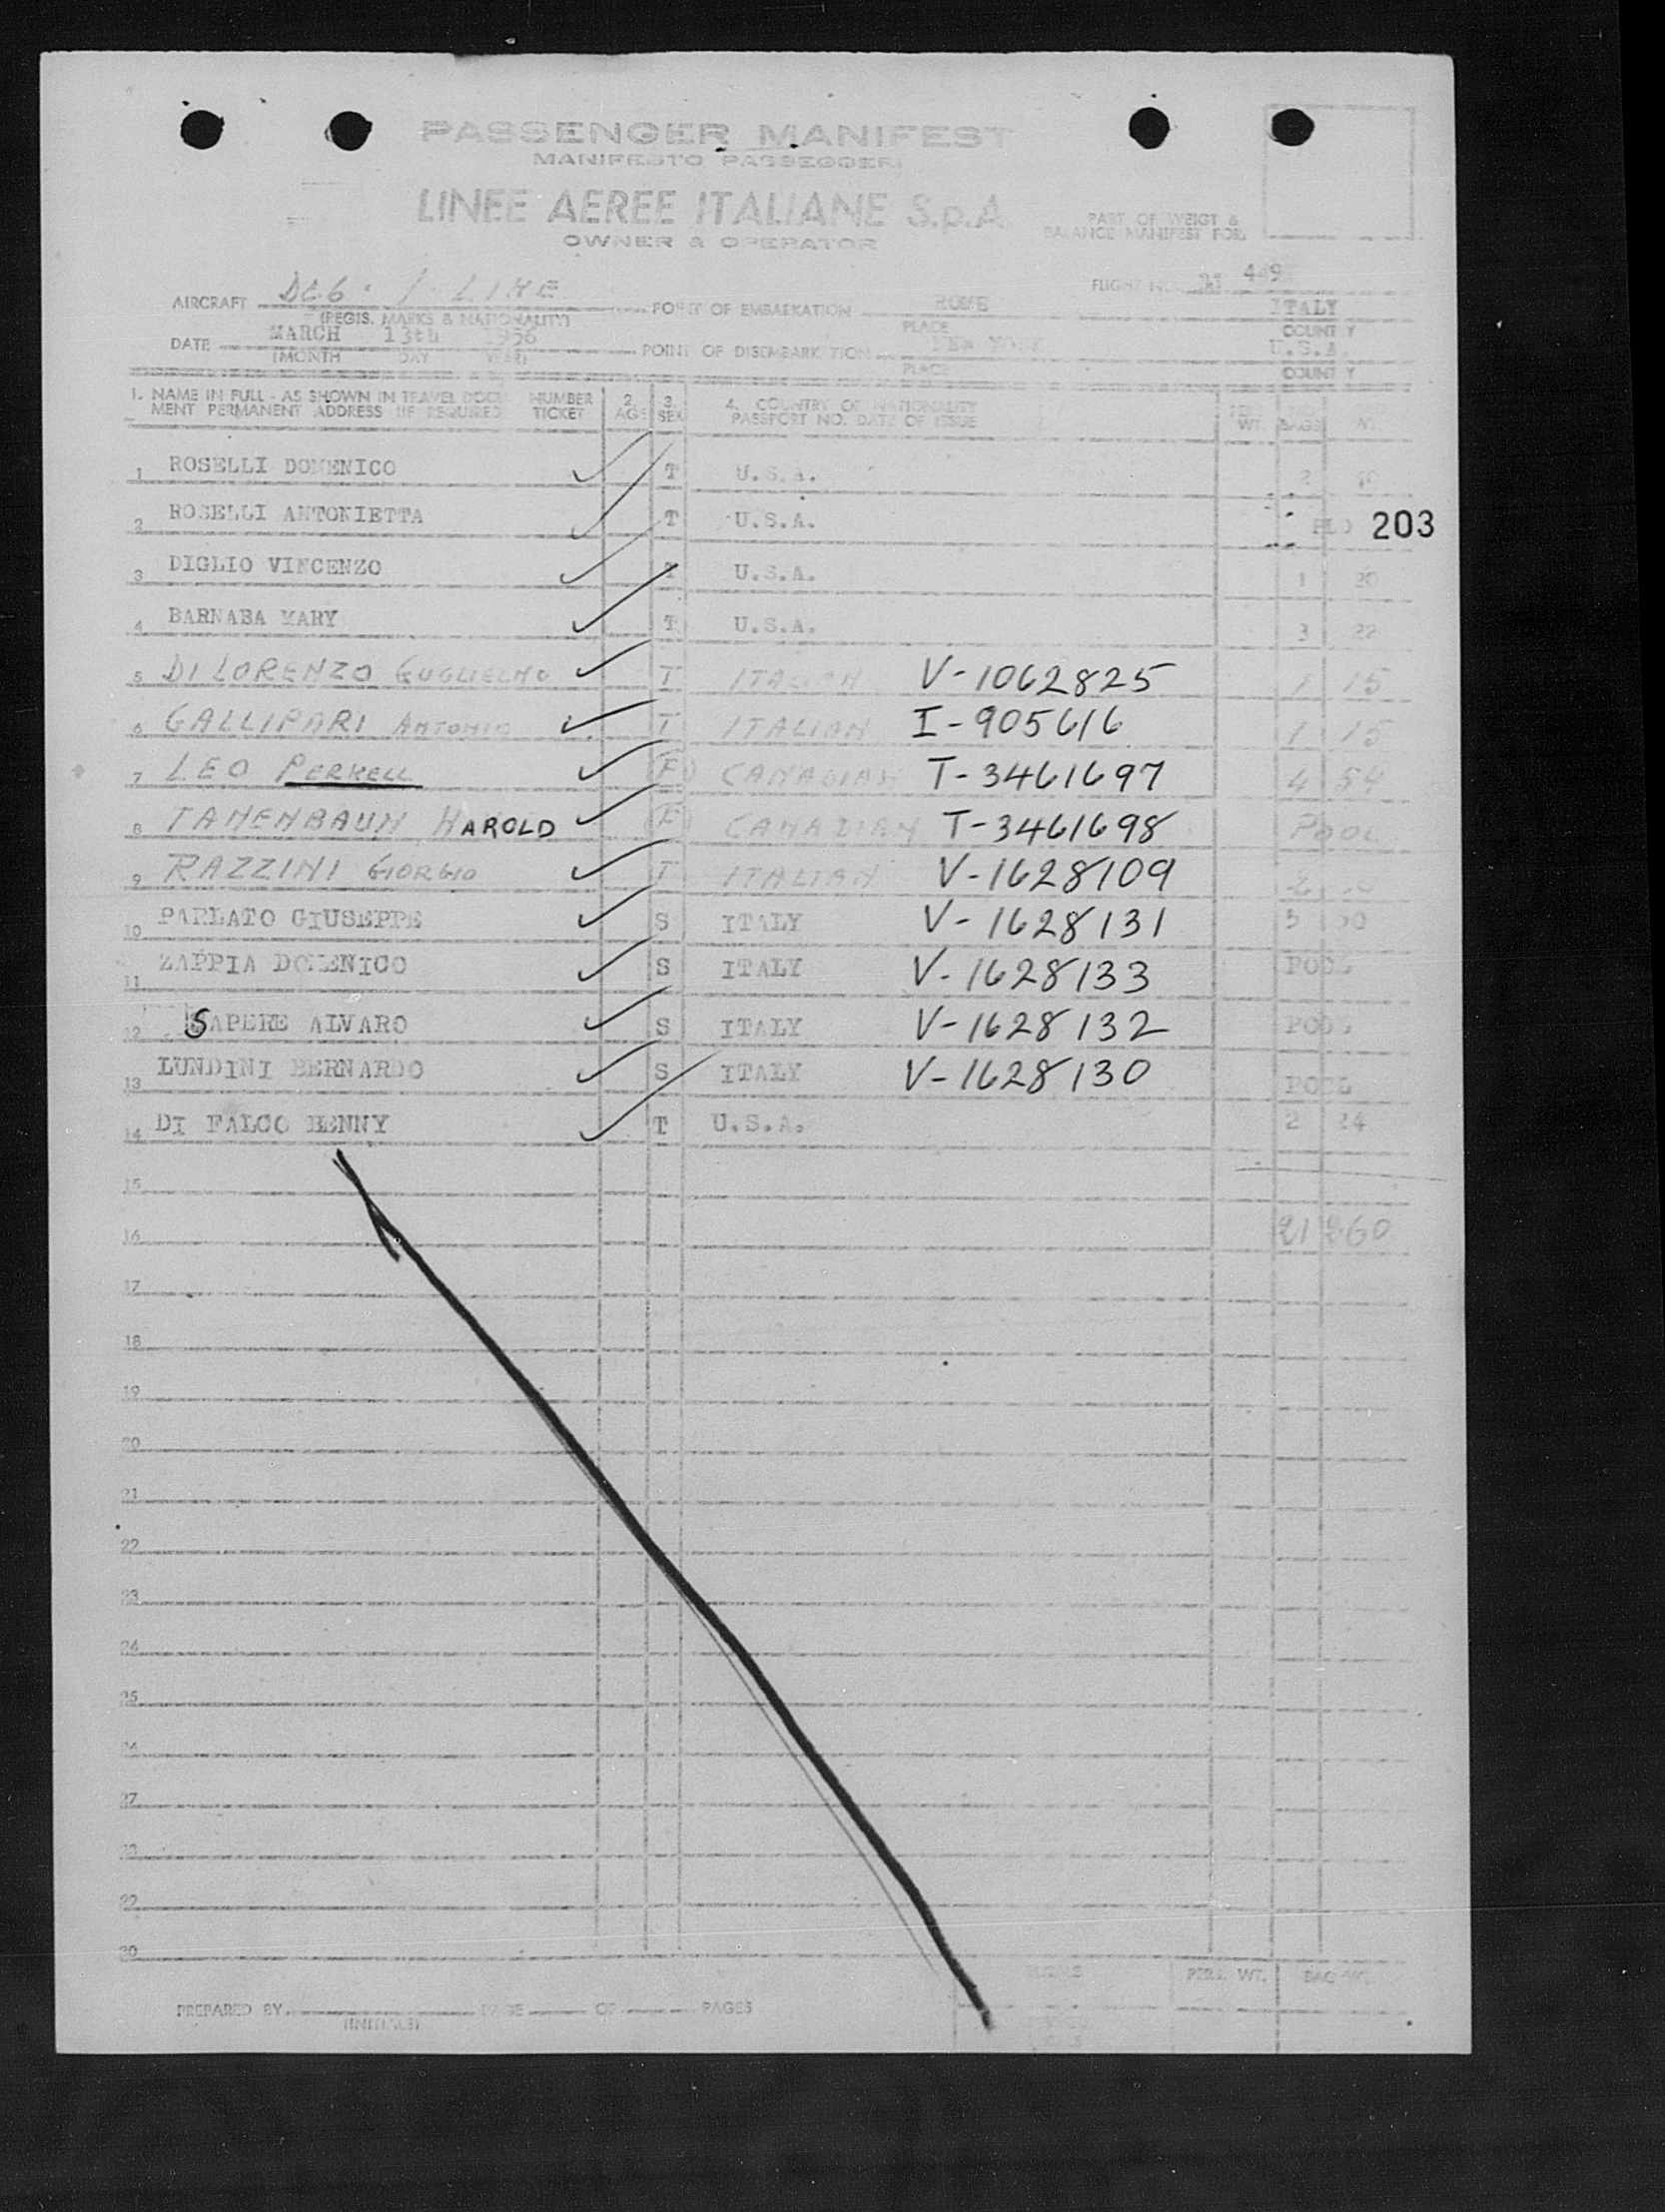 PASSENGER MANIFEST
MANIFESTO PASSEGGERI
LINEE AEREE ITALIANE S.p.A.
OWNER & OPERATOR
PART OF WEIGT &
BALANCE MANIFEST FOR.
AIRCRAFT DC6 · I LIKE POINT OF EMBARKATION ROME FLIGHT N. 449 ITALY
(REGIS. MARKS & NATIONALITY) PLACE COUNTRY
DATE MARCH 13th 1956 POINT OF DISEMBARKATION NEW YORK U.S.A.
(MONTH DAY YEAR) PLACE COUNTRY
1. NAME IN FULL - AS SHOWN IN TRAVEL DOCU- NUMBER 2. 3. 4. COUNTRY OF NATIONALITY
MENT PERMANENT ADDRESS IF REQUIRED TICKET AGE SEX PASSPORT NO. DATE OF ISSUE WT. BAGS WT.
1 ROSELLI DOMENICO T U.S.A. 2
2 ROSELLI ANTONIETTA T U.S.A. 203
3 DIGLIO VINCENZO T U.S.A. 1 20
4 BARNABA MARY T U.S.A. 3 22
5 DI LORENZO GUGLIELMO T ITALIAN V-1062825 1 15
6 GALLIPARI ANTONIO T ITALIAN I-905616 1 15
7 LEO PERKELL F CANADIAN T-3461697 4 54
8 TANENBAUN HAROLD F CANADIAN T-3461698 POOL
9 RAZZINI GIORGIO T ITALIAN V-1628109 2
10 PARLATO GIUSEPPE S ITALY V-1628131 5
11 ZAPPIA DOMENICO S ITALY V-1628133 POOL
12 SAPERE ALVARO S ITALY V-1628132 POOL
13 LUNDINI BERNARDO S ITALY V-1628130 POOL
14 DI FALCO BENNY T U.S.A. 2 24
15
16 21 260
17
18
19
20
21
22
23
24
25
26
27
28
29
30
PERS. WT. BAG WT.
PREPARED BY PAGE OF PAGES
(INITIALS)